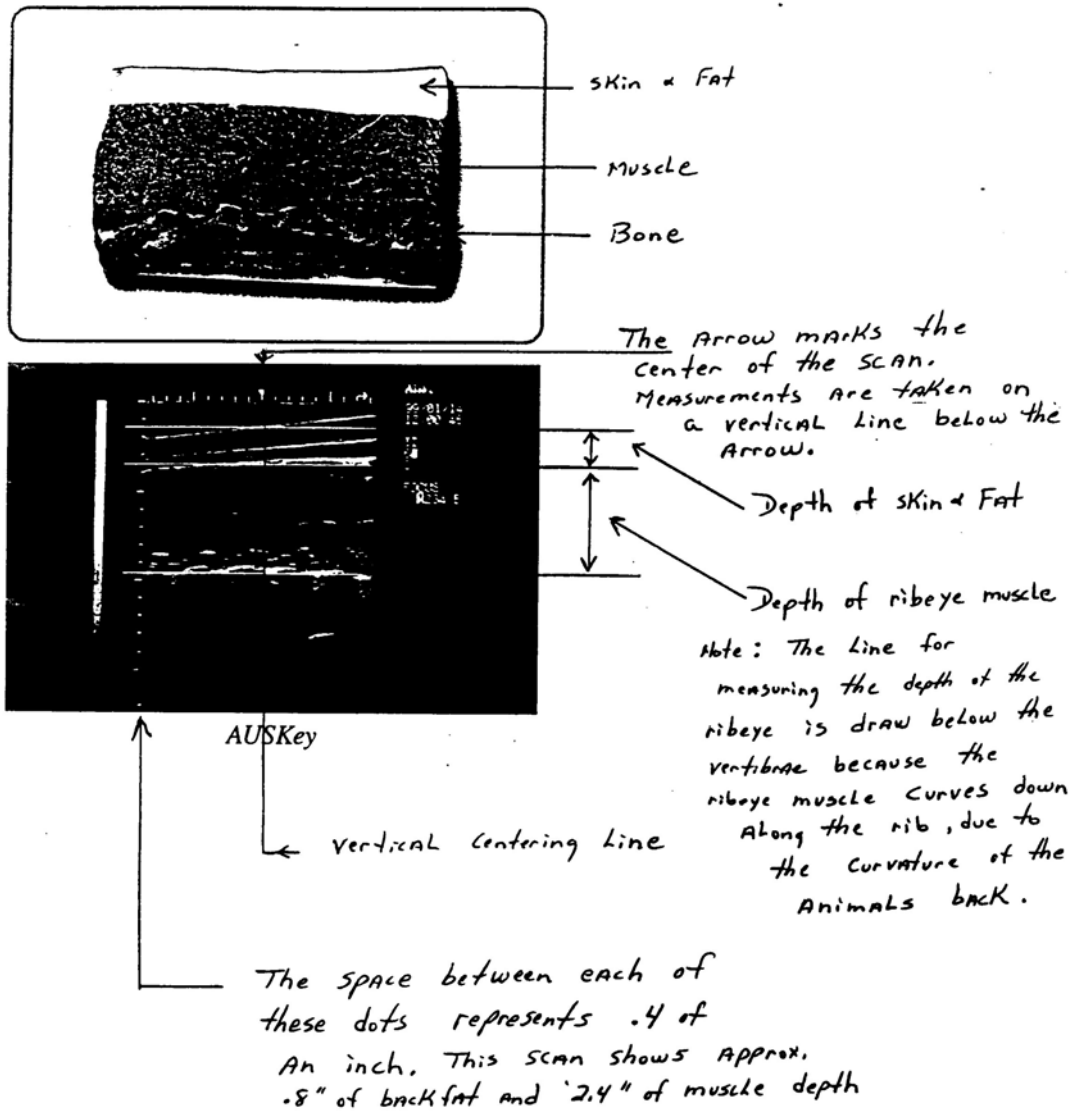 Skin & Fat
Muscle
Bone
The Arrow marks the
center of the scan.
Measurements are taken on
a vertical Line below the
Arrow.
Depth of skin & Fat
Depth of ribeye muscle
Note: The Line for
measuring the depth of the
ribeye is draw below the
vertibrae because the
ribeye muscle curves down
Along the rib, due to
the curvature of the
Animals back.
AUSKey
Vertical Centering Line
The space between each of
these dots represents .4 of
An inch. This scan shows Approx.
.8" of backfat and 2.4" of muscle depth